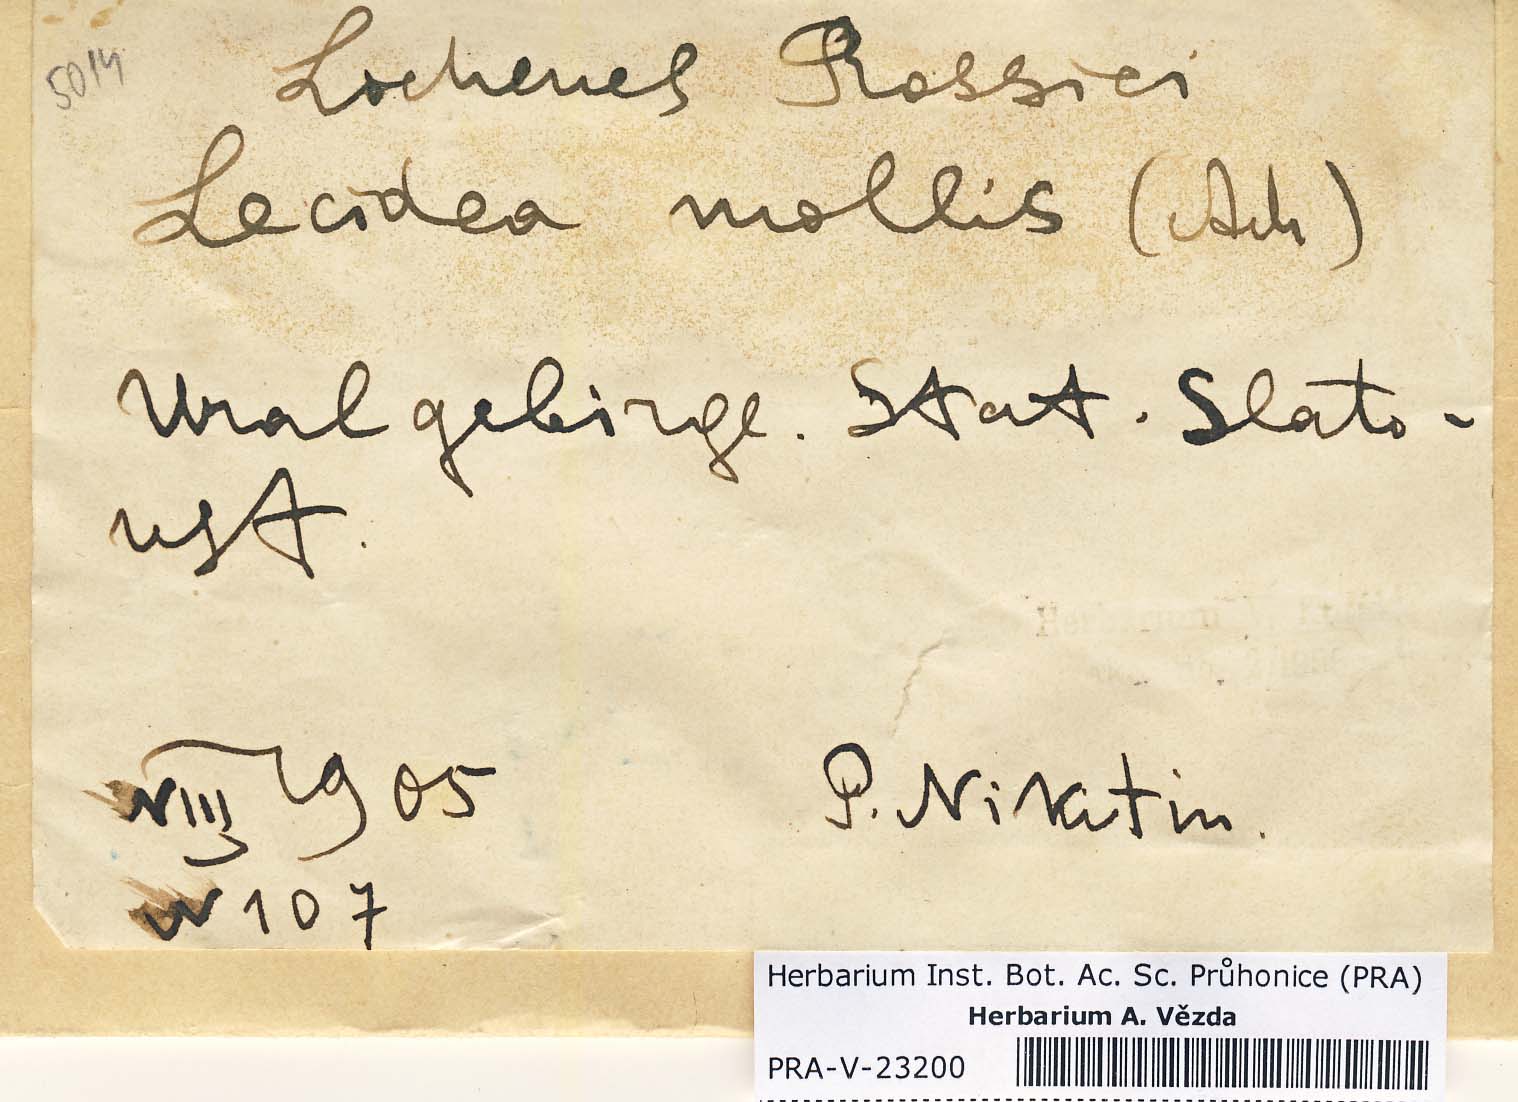 5014
Lichenes Rossici
Lecidea mollis (Ach)
Uralgebirge. Stat. Slato-
ust.
VIII 1905
P. Nikitin.
N 107
Herbarium Inst. Bot. Ac. Sc. Průhonice (PRA)
Herbarium A. Vězda
PRA-V-23200